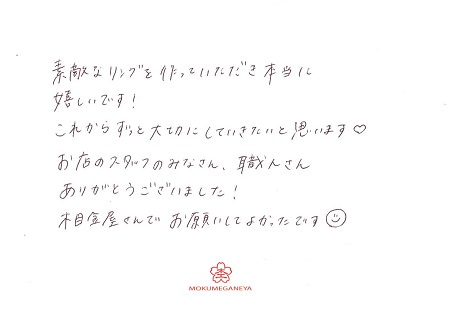 素敵なリングを作っていただき本当に
嬉しいです!
これからずっと大切にしていきたいと思います♡
お店のスタッフのみなさん、職人さん
ありがとうございました!
杢目金屋さんで お願いしてよかったです☺
MOKUMEGANEYA